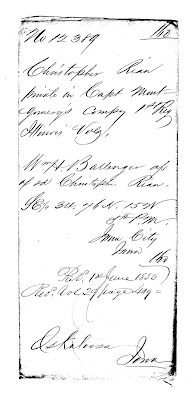 No 12.389 160
Christopher Rian
private in Capt Mont-
gomery's Compy 1st Reg
Illinois Vols.
Wm H Ballenger ass
of sd Christopher Rian.
76 N. 15 W
5th P.M.
Iowa City
Iowa
160
Pat. 1st June 1850
Rec. Vol 29 page
Oskaloosa Iowa